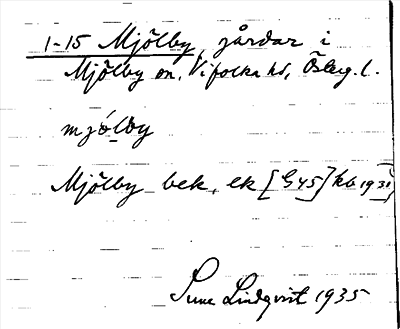 1-15 Mjölby, gårdar i
Mjölby sn, Vifolka hd, Österg. l.
mjó̀lby
Mjölby bek. ek [G45] kb 1931
Sune Lindqvist 1935